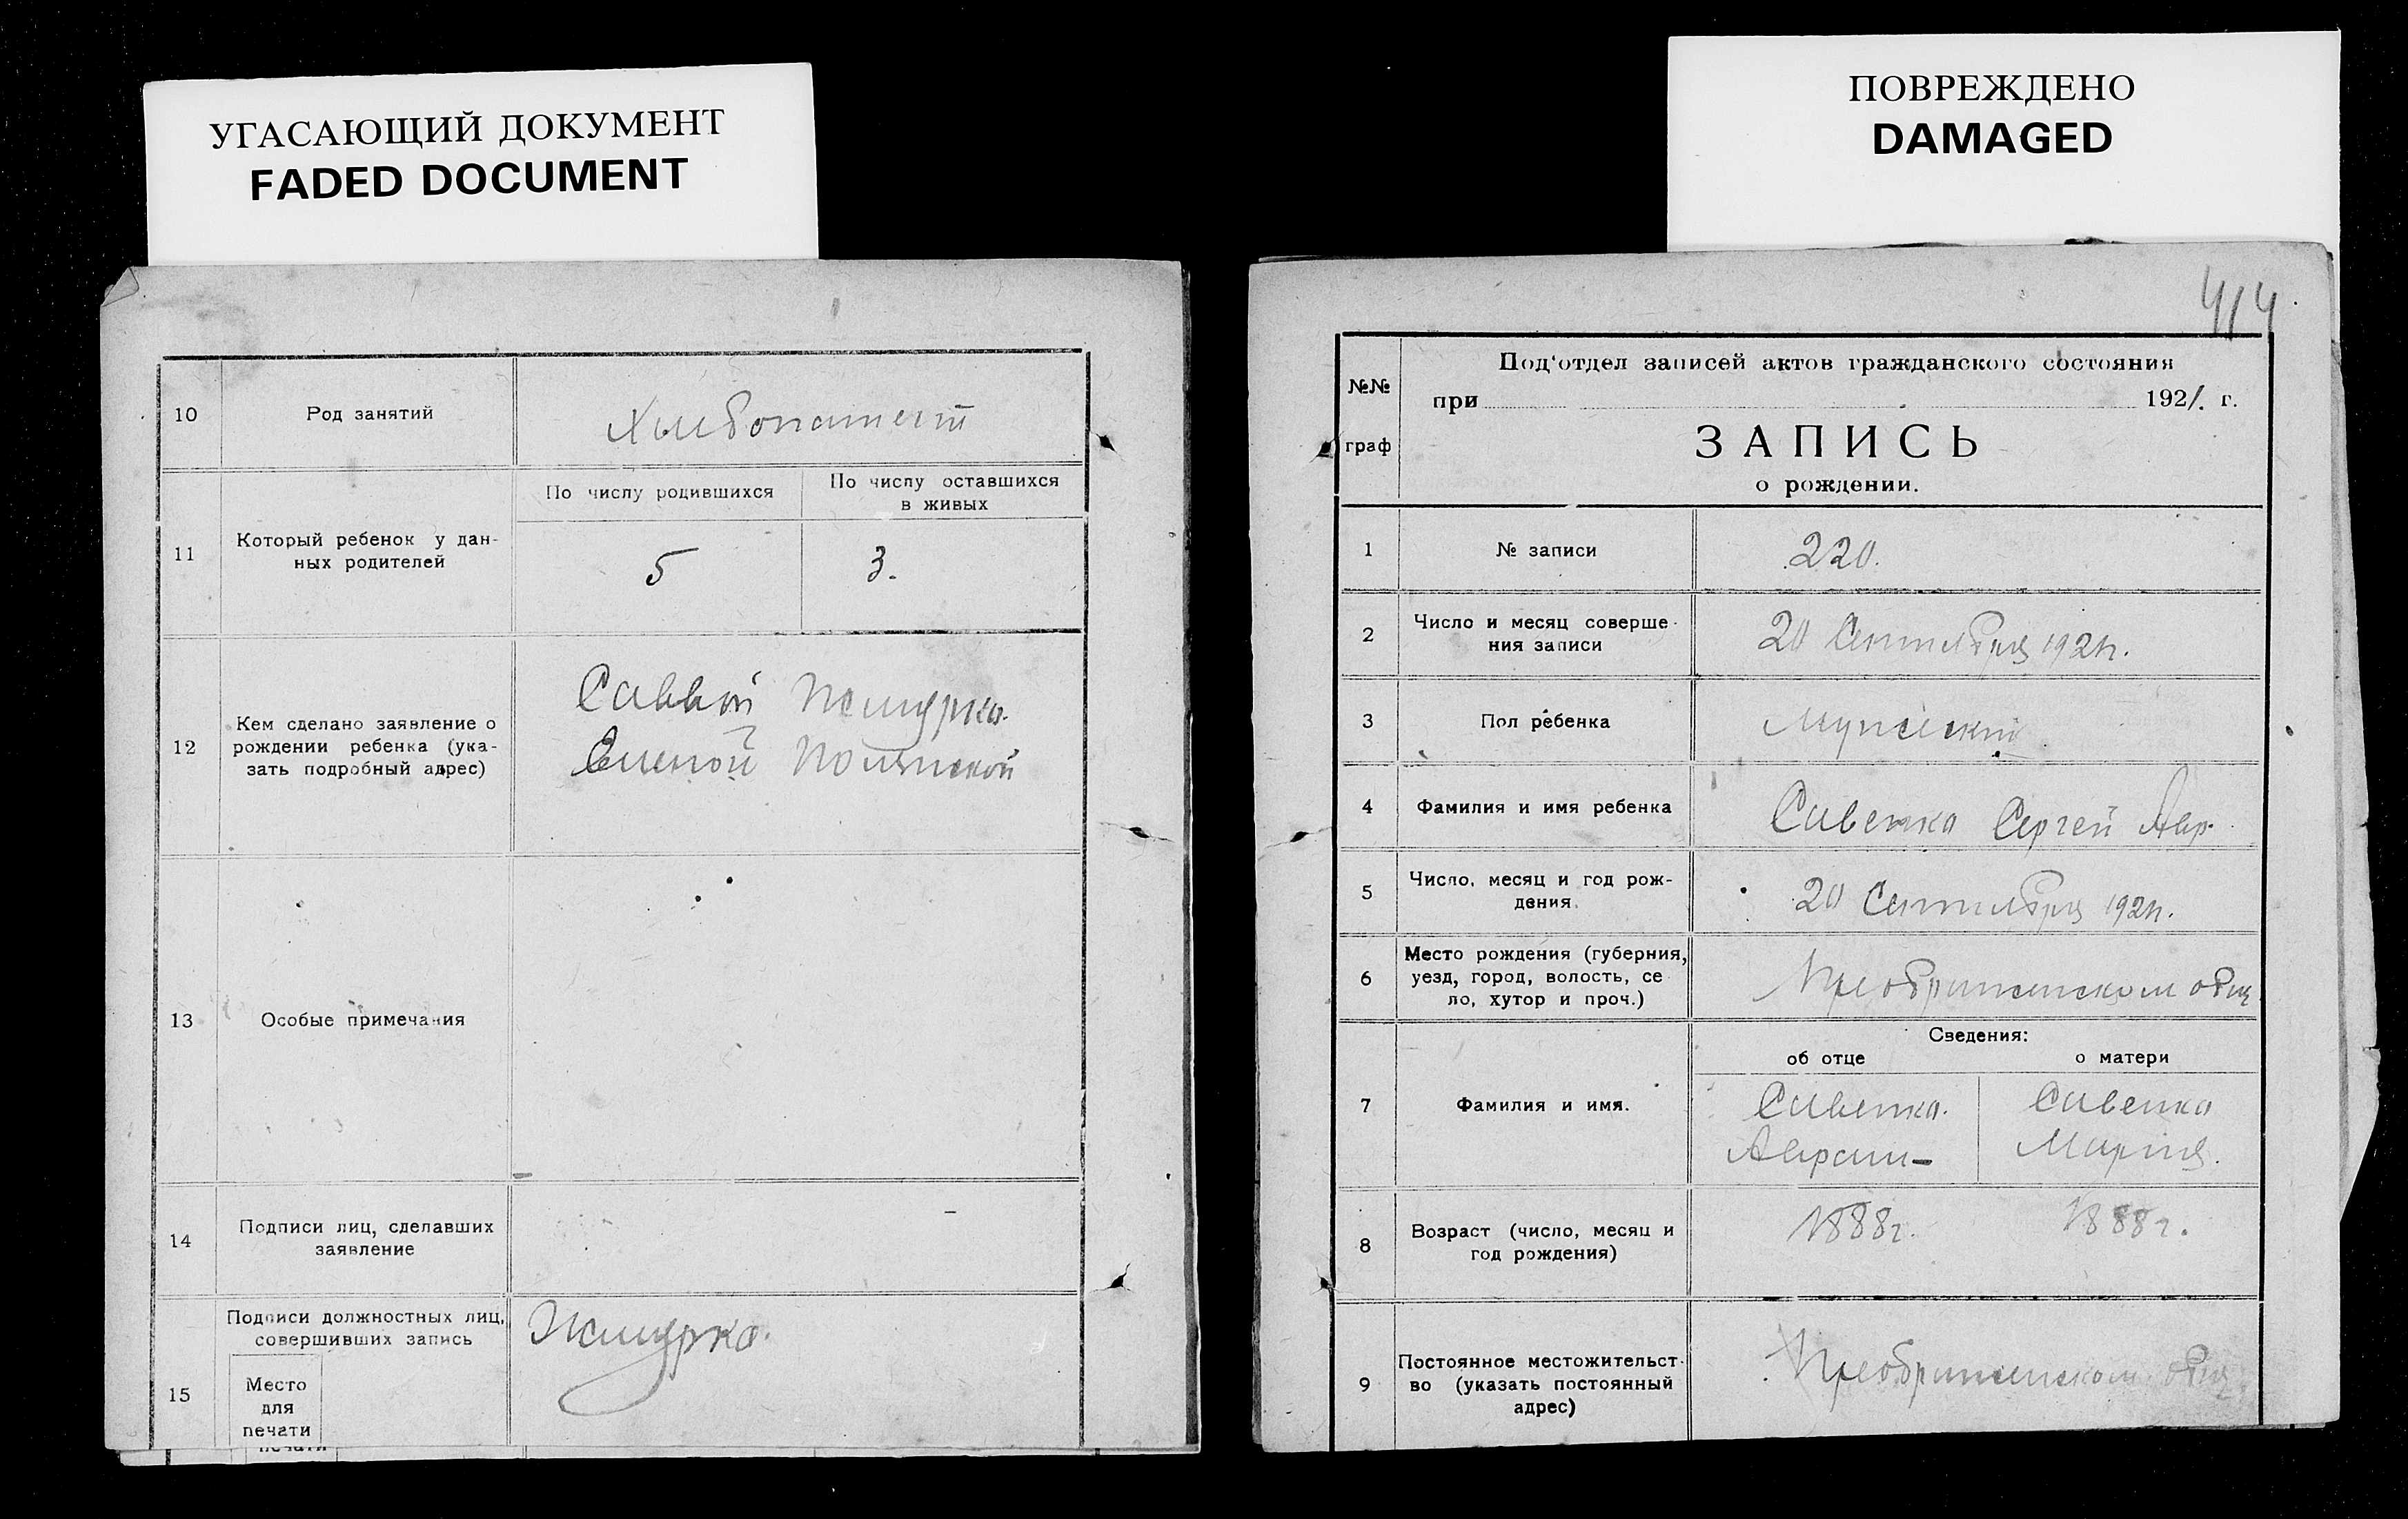 УГАСАЮЩИЙ ДОКУМЕНТ
FADED DOCUMENT
10
Род занятий
11
Который ребенок у дан-
ных родителей
По числу родившихся
По числу оставшихся
в живых
5
3.
12
Кем сделано заявление о
рождении ребенка (ука-
зать подробный адрес)
Саввой
Еленой
13
Особые примечания
14
Подписи лиц, сделавших
заявление
15
Подписи должностных лиц,
совершивших запись
Место
для
печати
печати
ПОВРЕЖДЕНО
DAMAGED
414
№№
граф
Под'отдел записей актов гражданского состояния
при 1921. г.
ЗАПИСЬ
о рождении.
1
№ записи
220.
2
Число и месяц соверше-
ния записи
20 Сентября 1921г.
3
Пол ребенка
Мужской
4
Фамилия и имя ребенка
Савенка Сергей Авр.
5
Число, месяц и год рож-
дения.
20 Сентября 1921г.
6
Место рождения (губерния,
уезд, город, волость, се
ло, хутор и проч.)
7
Фамилия и имя.
Сведения:
об отце
о матери
Савенка.
Аврам-
Савенка
Мария.
8
Возраст (число, месяц и
год рождения)
1888г.
1888г.
9
Постоянное местожительст-
во (указать постоянный
адрес)